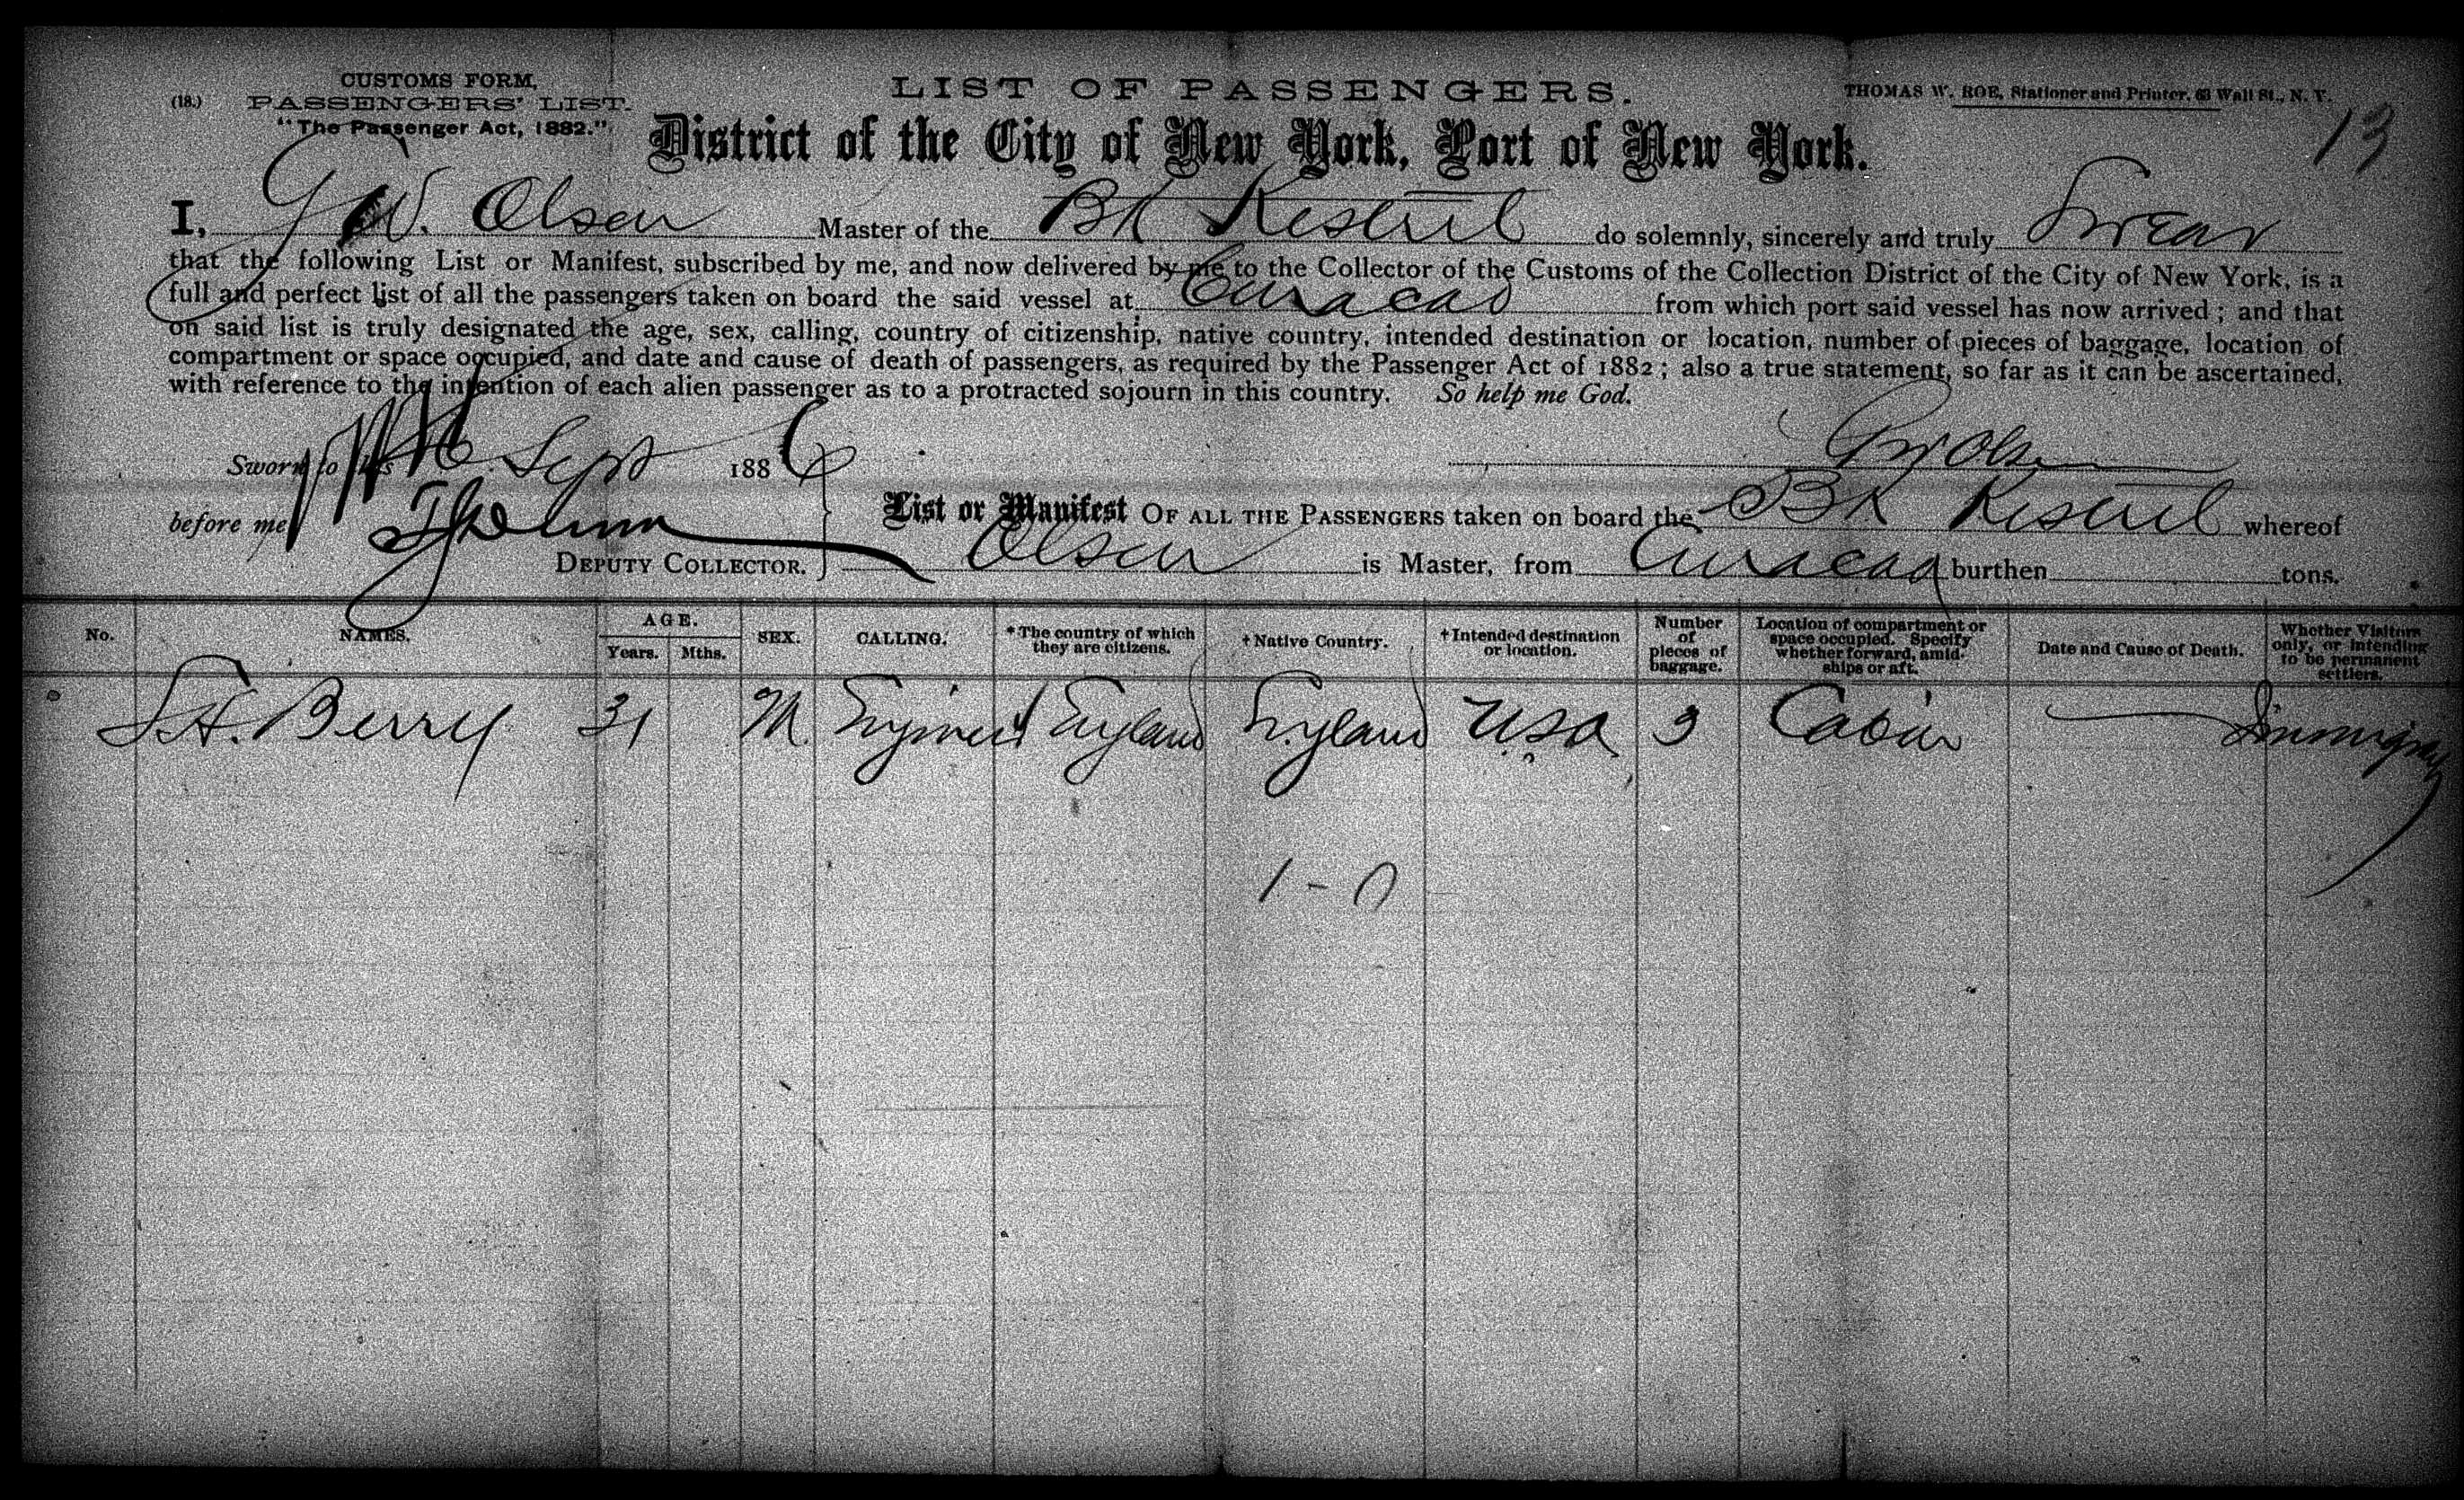 (18.) CUSTOMS FORM,
PASSENGERS' LIST.
"The Passenger Act, 1882."
LIST OF PASSENGERS.
THOMAS W. ROE, Stationer and Printer, 63 Wall St., N. Y.
13
District of the City of New York, Port of New York.
I, G W. Olsen Master of the Bk Kestrel do solemnly, sincerely and truly Swear
that the following List or Manifest, subscribed by me, and now delivered by me to the Collector of the Customs of the Collection District of the City of New York, is a
full and perfect list of all the passengers taken on board the said vessel at Curacao from which port said vessel has now arrived; and that
on said list is truly designated the age, sex, calling, country of citizenship, native country, intended destination or location, number of pieces of baggage, location of
compartment or space occupied, and date and cause of death of passengers, as required by the Passenger Act of 1882; also a true statement, so far as it can be ascertained,
with reference to the intention of each alien passenger as to a protracted sojourn in this country. So help me God.
Sworn to this 16 Sept 1886
GW Olsen
before me
DEPUTY COLLECTOR.
List or Manifest OF ALL THE PASSENGERS taken on board the Bk Kestrel whereof
Olsen is Master, from Curacao burthen tons.
No. NAMES. AGE. Years. Mths. SEX. CALLING. *The country of which they are citizens. †Native Country. †Intended destination or location. Number of pieces of baggage. Location of compartment or space occupied. Specify whether forward, amidships or aft. Date and Cause of Death. Whether Visitors only, or intending to be permanent settlers.
S. A. Berry 31 M. Engineer England England USA 3 Cabin
1-0